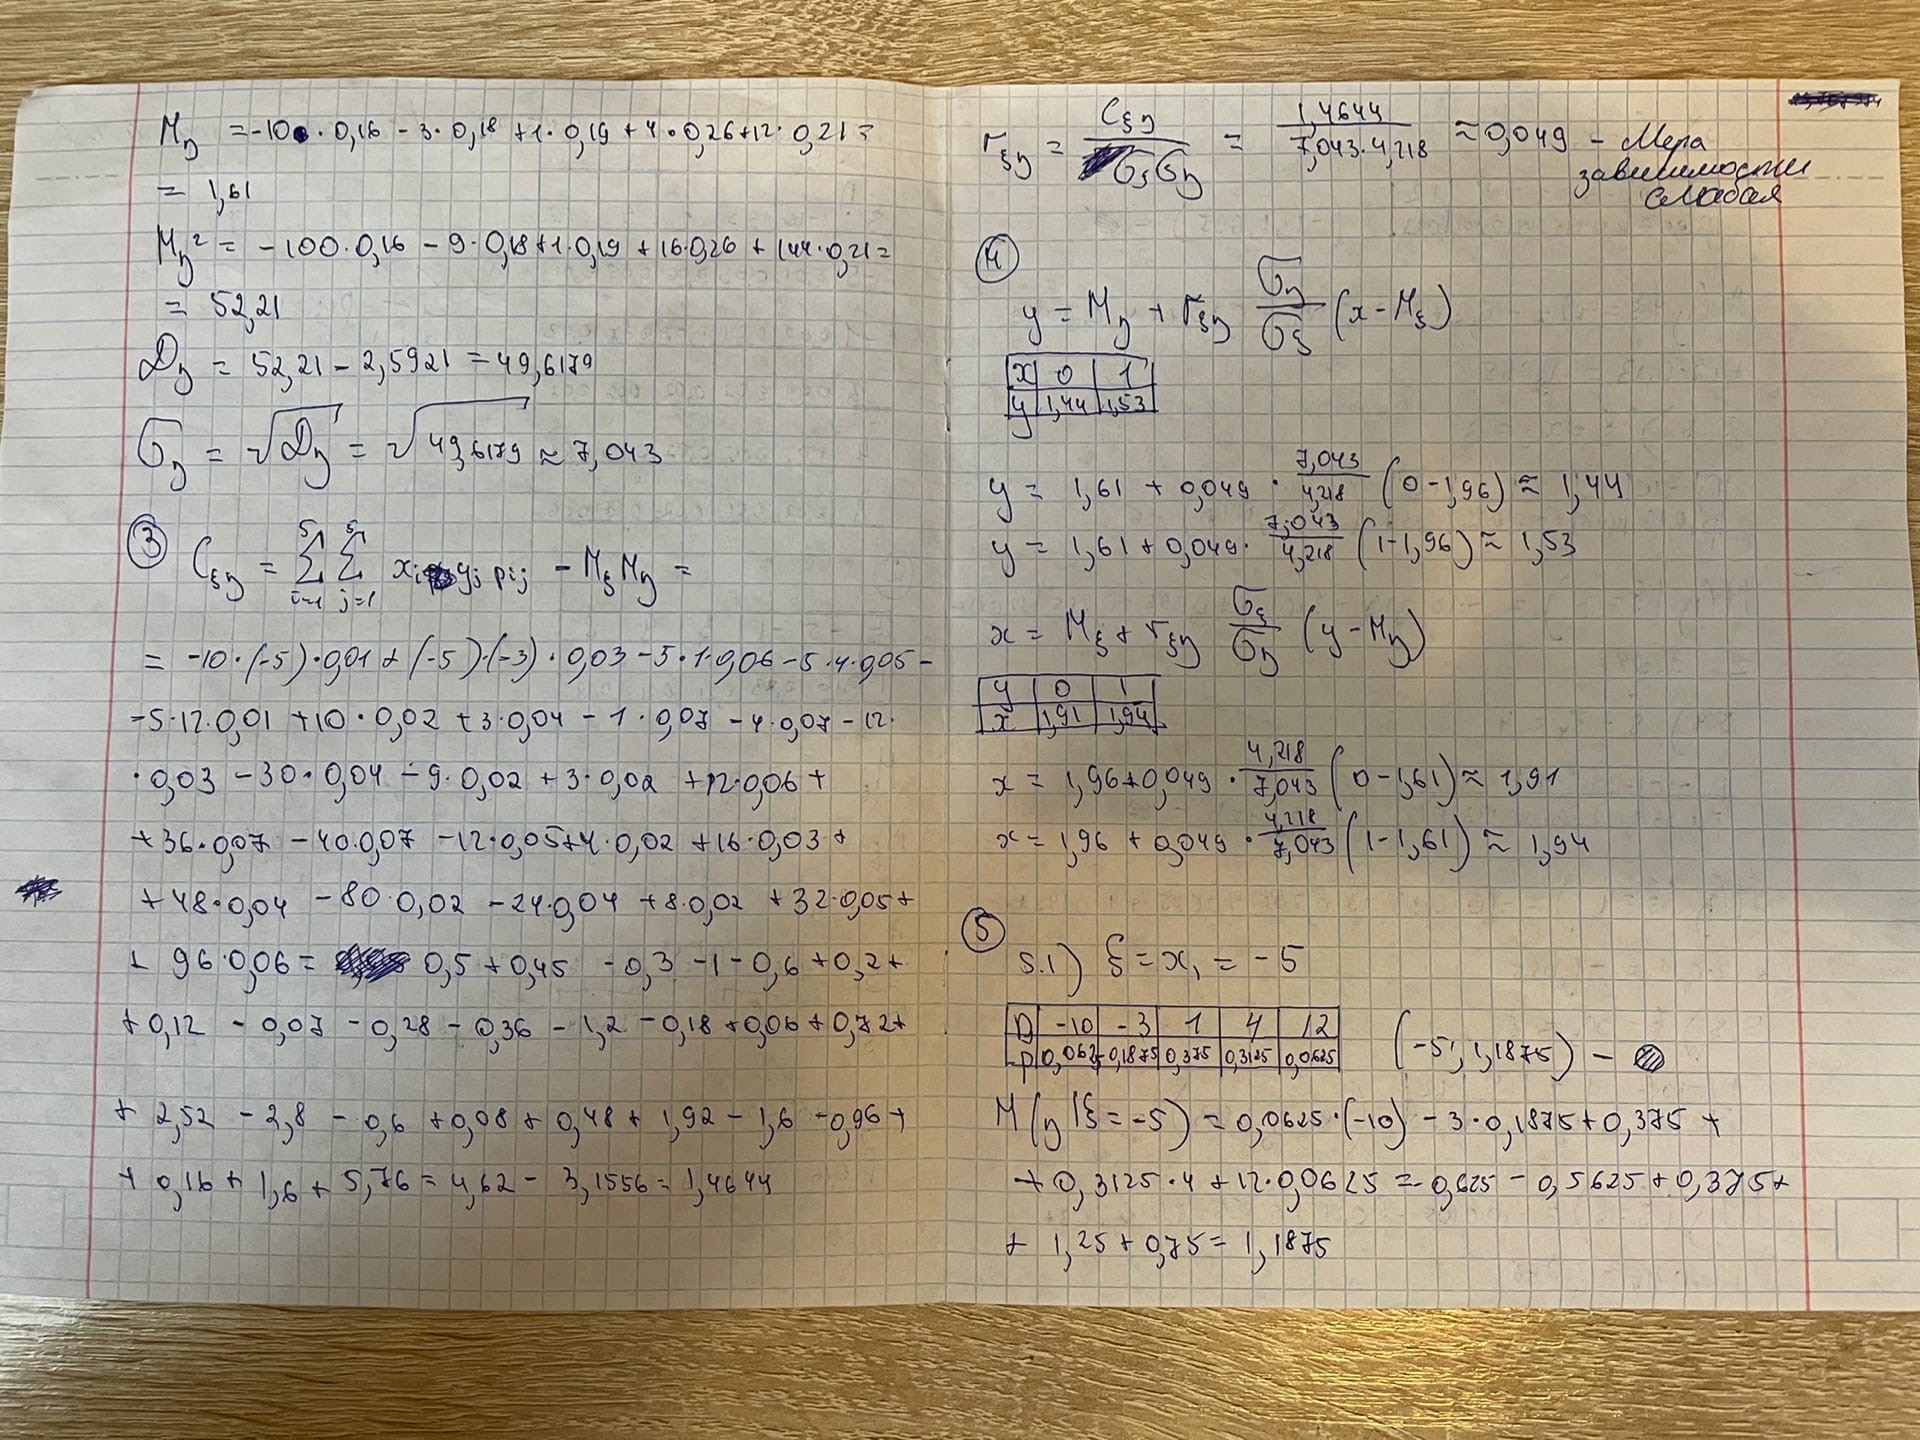 Mη = -10 · 0,16 - 3 · 0,18 + 1 · 0,19 + 4 · 0,26 + 12 · 0,21 =
= 1,61
Mη² = - 100 · 0,16 - 9 · 0,18 + 1 · 0,19 + 16 · 0,26 + 144 · 0,21 =
= 52,21
Dη = 52,21 - 2,5921 = 49,6179
ση = √Dη = √49,6179 ≈ 7,043
③ Cξη = Σ(i=1..5) Σ(j=1..5) xi yj pij - Mξ Mη =
= -10 · (-5) · 0,01 + (-5) · (-3) · 0,03 - 5 · 1 · 0,06 - 5 · 4 · 0,05 -
- 5 · 12 · 0,01 + 10 · 0,02 + 3 · 0,04 - 1 · 0,07 - 4 · 0,07 - 12 ·
· 0,03 - 30 · 0,04 - 9 · 0,02 + 3 · 0,02 + 12 · 0,06 +
+ 36 · 0,07 - 40 · 0,07 - 12 · 0,05 + 4 · 0,02 + 16 · 0,03 +
+ 48 · 0,04 - 80 · 0,02 - 24 · 0,04 + 8 · 0,02 + 32 · 0,05 +
+ 96 · 0,06 = 0,5 + 0,45 - 0,3 - 1 - 0,6 + 0,2 +
+ 0,12 - 0,07 - 0,28 - 0,36 - 1,2 - 0,18 + 0,06 + 0,72 +
+ 2,52 - 2,8 - 0,6 + 0,08 + 0,48 + 1,92 - 1,6 - 0,96 +
+ 0,16 + 1,6 + 5,76 = 4,62 - 3,1556 = 1,4644
rξη = Cξη / σξ ση = 1,4644 / 7,043 · 4,218 ≈ 0,049 - Мера
зависимости
слабая
④
y = Mη + rξη ση/σξ (x - Mξ)
x 0 1
y 1,44 1,53
y = 1,61 + 0,049 · 7,043/4,218 (0 - 1,96) ≈ 1,44
y = 1,61 + 0,049 · 7,043/4,218 (1 - 1,96) ≈ 1,53
x = Mξ + rξη σξ/ση (y - Mη)
y 0 1
x 1,91 1,94
x = 1,96 + 0,049 · 4,218/7,043 (0 - 1,61) ≈ 1,91
x = 1,96 + 0,049 · 4,218/7,043 (1 - 1,61) ≈ 1,94
⑤
5.1) ξ = x₁ = -5
η -10 -3 1 4 12
p 0,0625 0,1875 0,375 0,3125 0,0625
(-5; 1,1875) -
M(η|ξ = -5) = 0,0625 · (-10) - 3 · 0,1875 + 0,375 +
+ 0,3125 · 4 + 12 · 0,0625 = -0,625 - 0,5625 + 0,375 +
+ 1,25 + 0,75 = 1,1875